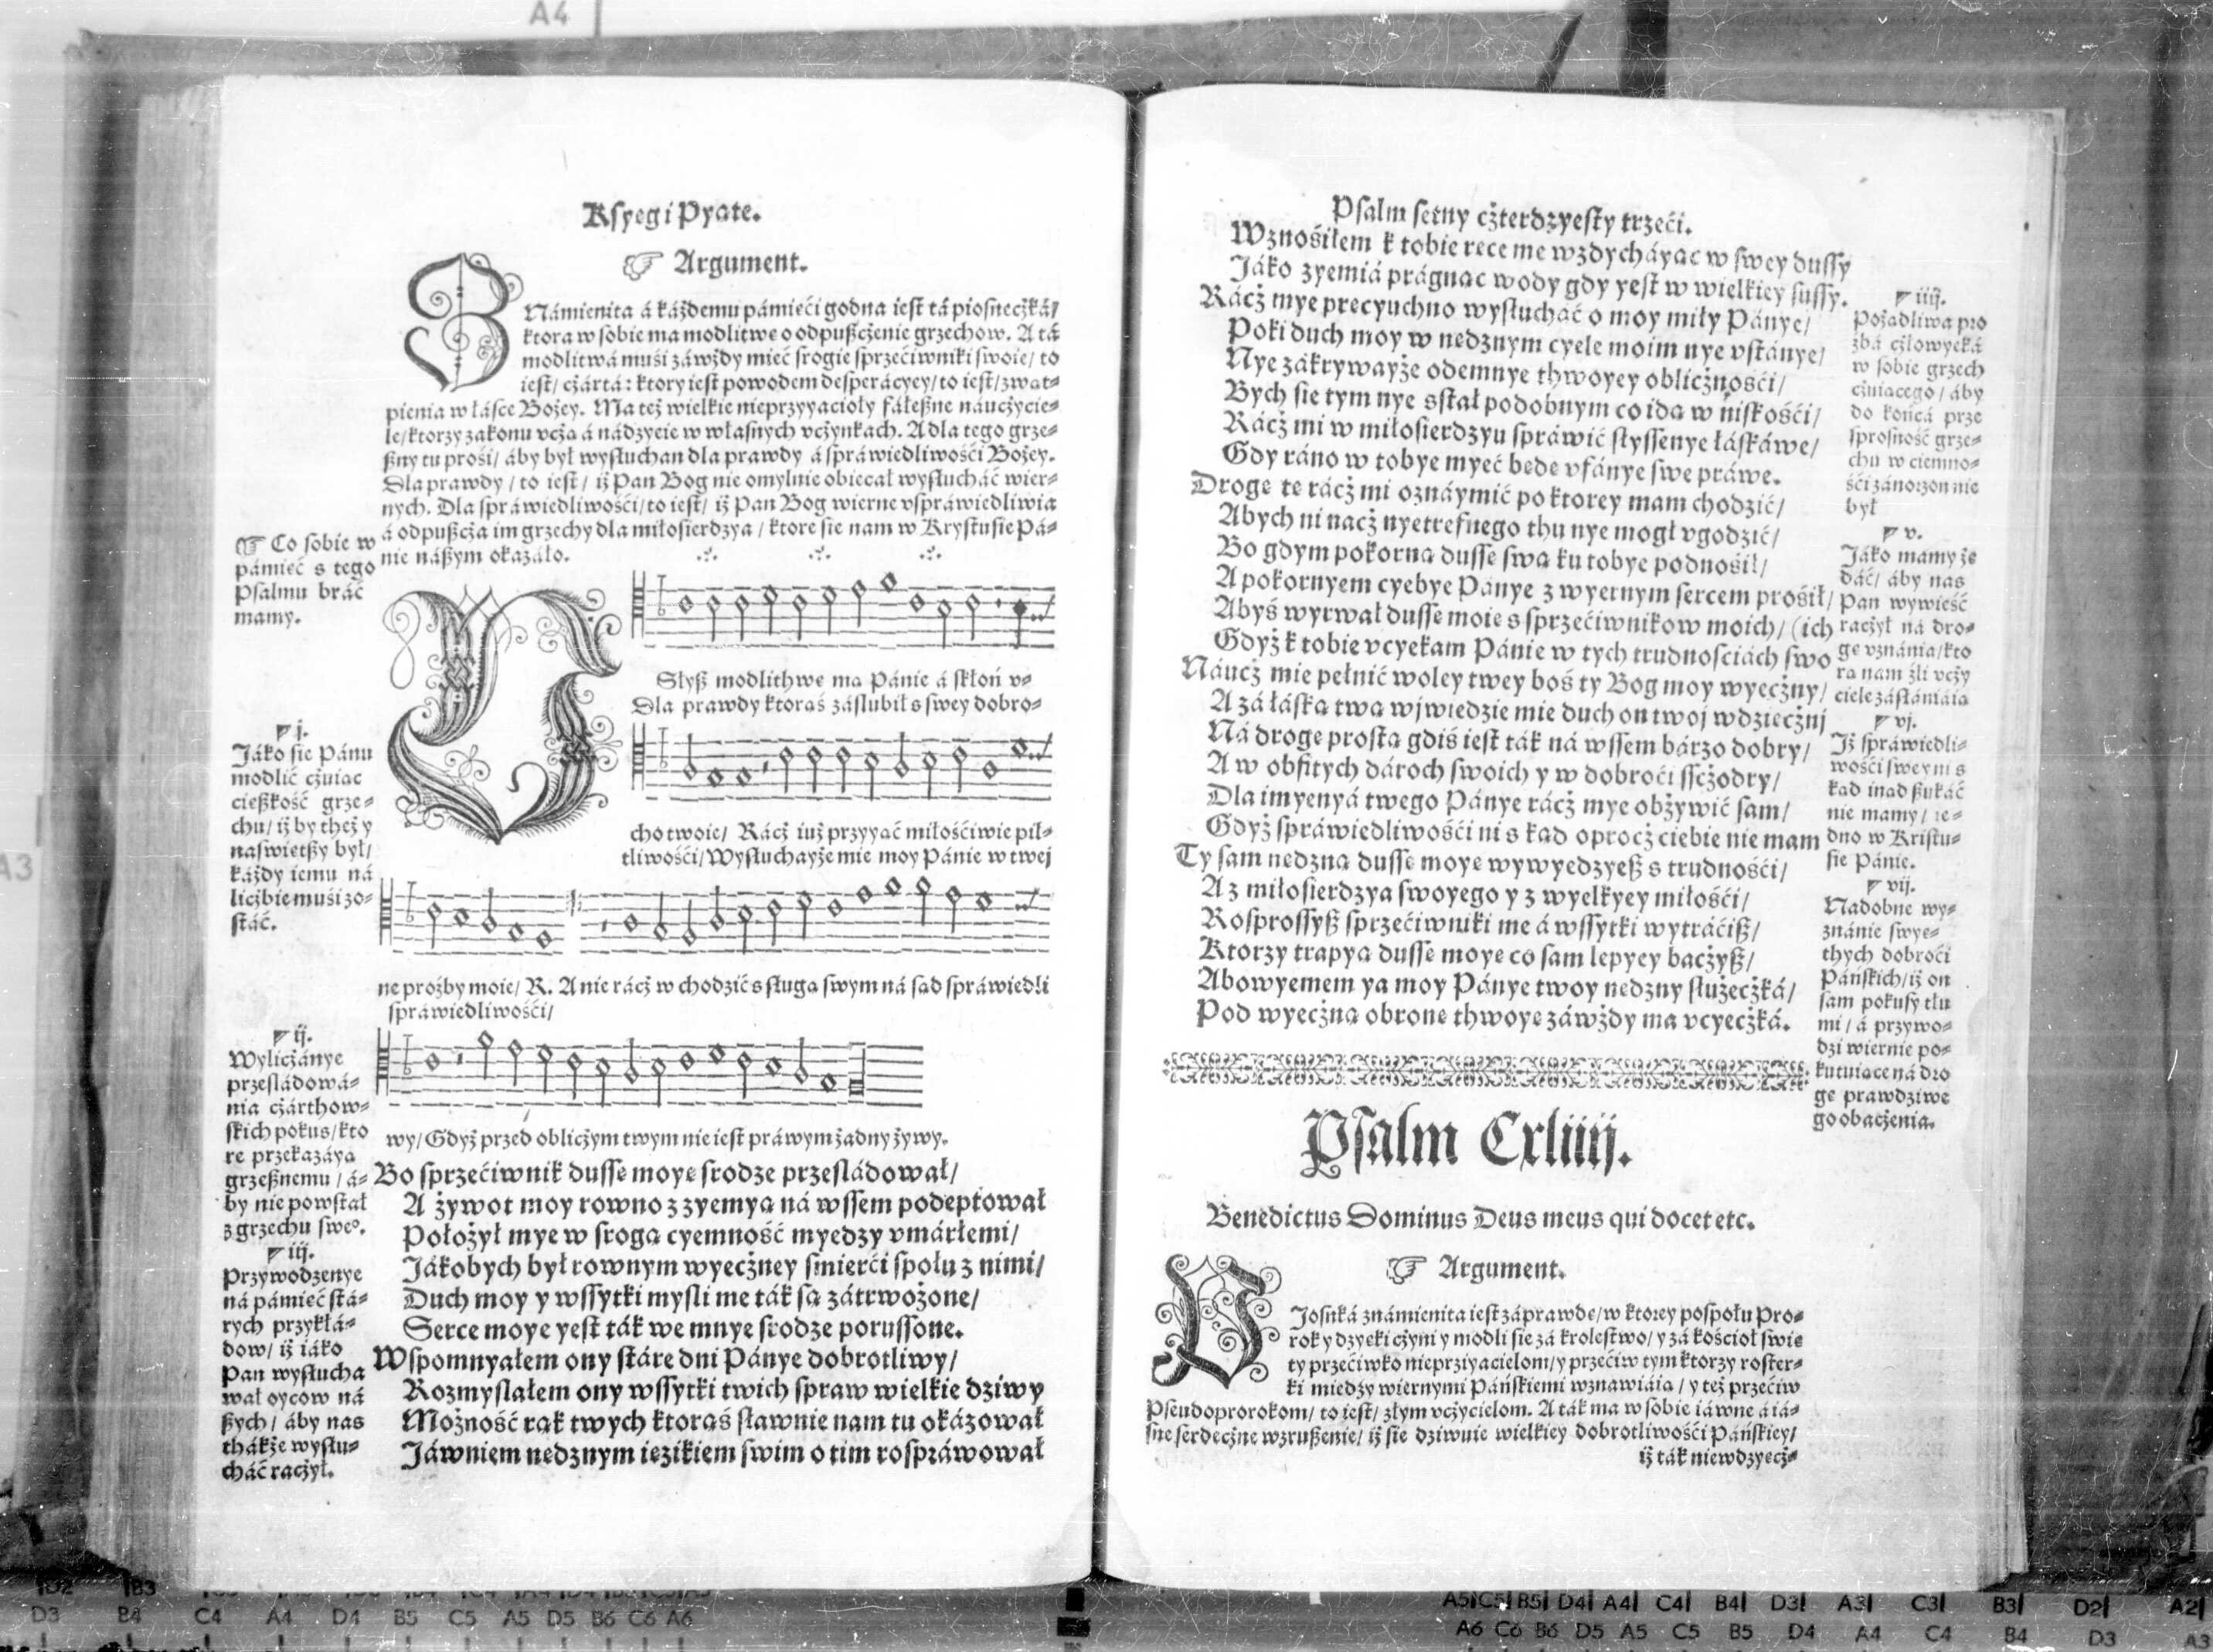 Ksyegi Pyate.
☞ Argument.
ZNámienita á káżdemu pámięći godna iest tá piosneczká/
ktora w sobie ma modlitwe o odpuszczenie grzechow. A tá
modlitwá muśi záwżdy mieć srogie sprzećiwniki swoie/ to
iest/ czártá: ktory iest powodem desperácyey/ to iest/ zwat-
pienia w łásce Bożey. Ma też wielkie nieprzyyacioły fáłeszne náuczycie-
le/ ktorzy zakonu vcża á nádzycie w własnych vcżynkach. A dla tego grze-
szny tu prośi/ áby był wysłuchan dla prawdy á spráwiedliwośći Bożey.
Dla prawdy / to iest/ iż Pan Bog nie omylnie obiecał wysłucháć wier-
nych. Dla spráwiedliwośći/ to iest/ iż Pan Bog wierne vspráwiedliwia
á odpuszcża im grzechy dla miłosierdzya / ktore sie nam w Krystusie Pá-
nie nászym okazáło.
☞ Co sobie w
pámieć s tego
Psalmu bráć
mamy.
Słysz modlithwe ma Pánie á skłoń v-
Dla prawdy ktoraś záslubił s swey dobro-
cho twoie/ Rácż iuż przyyać miłośćiwie pil-
tliwośći/ Wysłuchayże mie moy Pánie w twej
ne proźby moie/ R. A nie rácż w chodzić s sługa swym ná sad spráwiedli
spráwiedliwośći/
wy/ Gdyż przed obliczym twym nie iest práwym żadny żywy.
j.
Jáko sie Pánu
modlić cżuiac
cieszkość grze-
chu/ iż by theż y
naswietszy był/
káżdy iemu ná
licżbie muśi zo-
stáć.
ij.
Wyliczánye
przesládowá-
nia czárthow-
skich pokus/ kto
re przekazáya
grzesznemu / á-
by nie powstał
z grzechu sweº.
iij.
Przywodzenye
ná pámieć stá-
rych przykłá-
dow/ iż iáko
Pan wysłucha
wał oycow ná
szych / áby nas
thákże wysłu-
cháć raczył.
Bo sprzećiwnik dusse moye srodze przesládował/
A żywot moy rowno z zyemya ná wssem podeptował
Położył mye w sroga cyemność myedzy vmárłemi/
Jákobych był rownym wyeczney smierći społu z nimi/
Duch moy y wssytki mysli me ták sa zátrwożone/
Serce moye yest ták we mnye srodze porussone.
Wspomnyałem ony stáre dni Pánye dobrotliwy/
Rozmyslałem ony wssytki twich spraw wielkie dziwy
Możność rak twych ktoraś sławnie nam tu okázował
Jáwniem nedznym iezikiem swim o tim rospráwował
Psalm setny cżterdzyesty trzeći.
Wznośiłem k tobie rece me wzdycháyac w swey dussy
Jáko zyemiá prágnac wody gdy yest w wielkiey sussy.
Rácż mye precyuchno wysłucháć o moy miły Pánye/
Poki duch moy w nedznym cyele moim nye vstánye/
Nye zákrywayże odemnye thwoyey oblicżnośći/
Bych sie tym nye sstał podobnym co ida w niskośći/
Rácż mi w miłosierdzyu spráwić słyssenye łáskáwe/
Gdy ráno w tobye myeć bede vfánye swe práwe.
Droge te rácż mi oznáymić po ktorey mam chodzić/
Abych ni nacż nyetrefnego thu nye mogł vgodzić/
Bo gdym pokorna dusse swa ku tobye podnośił/
A pokornyem cyebye Panye z wyernym sercem prośił/
Abyś wyrwał dusse moie s sprzećiwnikow moich/ (ich
Gdyż k tobie vcyekam Pánie w tych trudnosciách swo
Náucż mie pełnić woley twey boś ty Bog moy wyecżny/
A zá łáska twa wjwiedzie mie duch on twoj wdziecżnj
Ná droge prosta gdiś iest ták ná wssem bárzo dobry/
A w obfitych dároch swoich y w dobroći sscżodry/
Dla imyenyá twego Pánye rácż mye obżywić sam/
Gdyż spráwiedliwośći ni s kad oprocż ciebie nie mam
Ty sam nedzna dusse moye wywyedzyesz s trudnośći/
A z miłosierdzya swoyego y z wyelkyey miłośći/
Rosprossysz sprzećiwniki me á wssytki wytráćisz/
Ktorzy trapya dusse moye co sam lepyey bacżysz/
Abowyemem ya moy Pánye twoy nedzny służecżká/
Pod wyecżna obrone thwoye záwżdy ma vcyecżká.
iiij.
Pożadliwa pro
zbá cżłowyeká
w sobie grzech
cżuiacego / áby
do końcá prze
sprosność grze-
chu w ciemno-
śći zánorzon nie
był
v.
Jáko mamy że
dáć/ áby nas
Pan wywieść
raczył ná dro-
ge vznánia/ kto
ra nam źli vcży
ciele zásłániáia
vj.
Iż spráwiedli-
wośći sweyni s
kad inad szukáć
nie mamy/ ie-
dno w Kristu-
sie Pánie.
vij.
Nadobne wy-
znánie swye-
thych dobroći
Páńskich/ iż on
sam pokusy tłu
mi/ á przywo-
dzi wiernie po-
kutuiace ná dro
ge prawdziwe
go obacżenia.
Psalm Cxliiij.
Benedictus Dominus Deus meus qui docet etc.
☞ Argument.
PJosnká známienita iest záprawde/ w ktorey pospołu Pro-
rok y dzyeki czyni y modli sie zá krolestwo/ y zá kościoł swie
ty przećiwko nieprziyacielom/ y przećiw tym ktorzy roster-
ki miedzy wiernymi Páńskiemi wznawiáia/ y też przećiw
Pseudoprorokom/ to iest/ złym vcżycielom. A ták ma w sobie iáwne á iá-
sne serdeczne wzruszenie/ iż sie dziwuie wielkiey dobrotliwośći Páńskiey/
iż ták niewdzyecż-
A4
A3
D2 B3
D3 B4 C4 A4 D4 B5 C5 A5 D5 B6 C6 A6
A5 C5 B5 D4 A4 C4 B4 D3 A3 C3 B3 D2 A2
A6 C6 B6 D5 A5 C5 B5 D4 A4 C4 B4 D3 A3